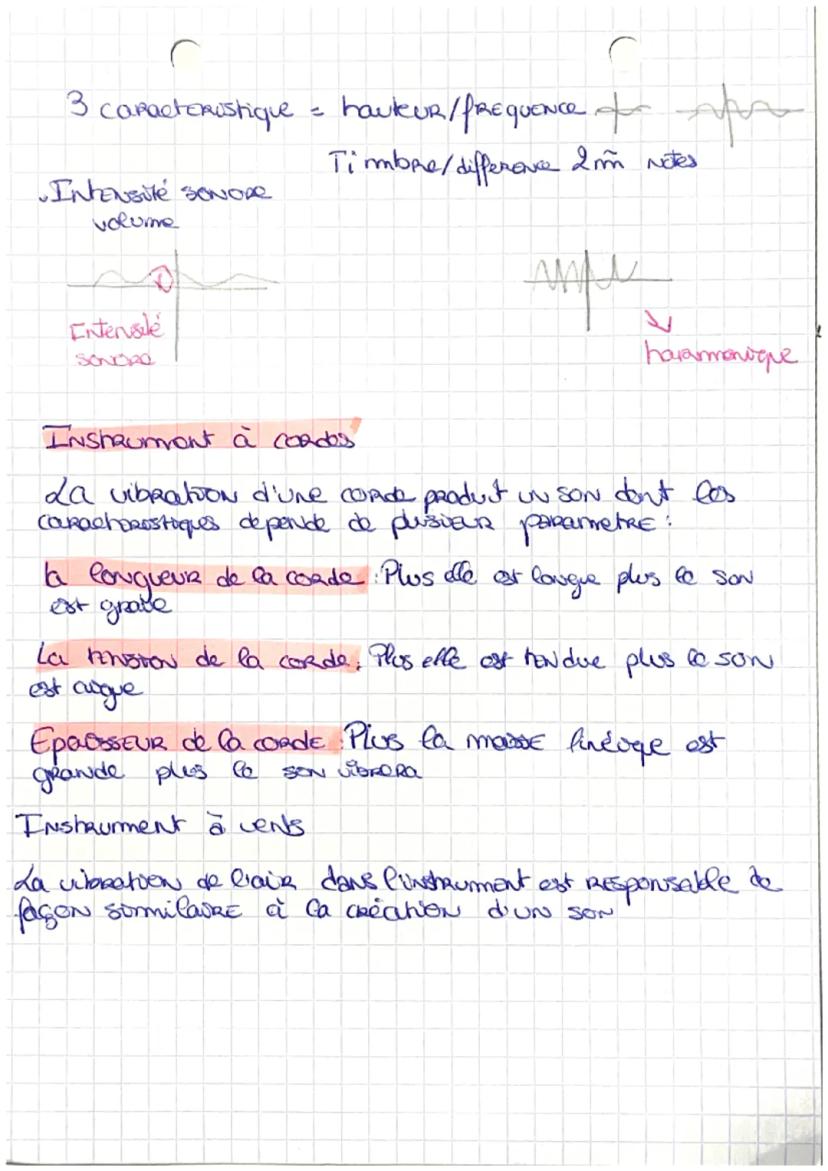 3 caracteristique = hauteur/frequence
Timbre/difference 2 m̃ notes
Intensité sonore
volume
Intensité
sonore
haramonique
Instrument à cordes
La vibration d'une corde produit un son dont les
caracteristiques depende de plusieur parametre :
la longueur de la corde : Plus elle est longue plus le son
est grave
La tension de la corde : Plus elle est tendue plus le son
est aigue
Epaisseur de la corde : Plus la masse linéique est
grande plus le son vibrera
Instrument à vens
La vibration de l'air dans l'instrument est responsable de
façon similaire à la création d'un son